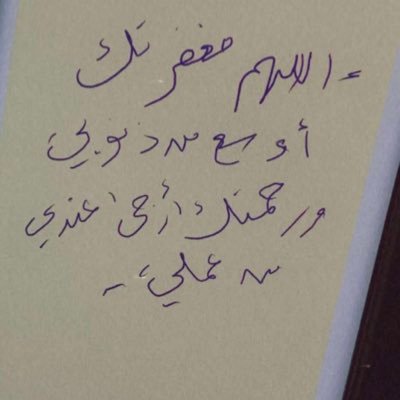 اللهم مغفرتك
أوسع من ذنوبي
ورحمتك أرجى عندي
من عملي